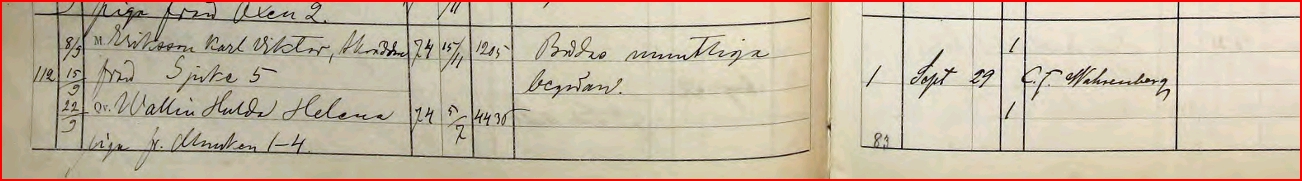 piga från Oxen 2. /11
8/9 M. Eriksson Karl Viktor, 74 15/11 1205 Bådas muntliga 1
112 15/9 från 5 begäran. 1 Sept 29 C.J. Wahrenberg
22/9 Qv. Wallin Hulda Helena 74 5/7 4435 1
piga fr. 1-4. 83